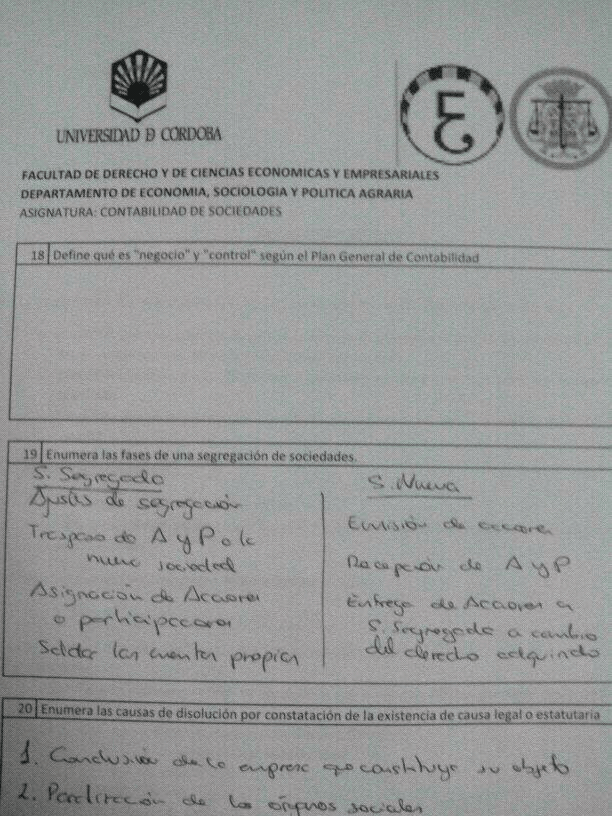 UNIVERSIDAD D CORDOBA
FACULTAD DE DERECHO Y DE CIENCIAS ECONOMICAS Y EMPRESARIALES
DEPARTAMENTO DE ECONOMIA, SOCIOLOGIA Y POLITICA AGRARIA
ASIGNATURA: CONTABILIDAD DE SOCIEDADES
18 Define qué es "negocio" y "control" según el Plan General de Contabilidad
19 Enumera las fases de una segregación de sociedades.
S. Segregada
Ajustes de segregación
Traspaso de A y P a la
nueva sociedad
Asignación de Acciones
o participaciones
Saldar las cuentas propias
S. Nueva
Emisión de acciones
Recepción de A y P
Entrega de Acciones a
S. Segregada a cambio
del derecho adquirido
20 Enumera las causas de disolución por constatación de la existencia de causa legal o estatutaria
1. Conclusión de la empresa que constituye su objeto
2. Paralización de los órganos sociales